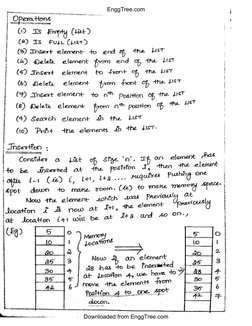 EnggTree.com
Operations
(1) Is Empty (List)
(2) Is FULL (LIST)
(3) Insert element to end of the LIST
(4) Delete element from end of the LIST
(5) Insert element to front of the LIST
(6) Delete element from front of the LIST
(7) Insert element to nth Position of the LIST
(8) Delete element from nth position of the LIST
(9) Search element in the LIST
(10) Print the elements in the LIST.
Insertion :
Consider a List of size 'n'. If an element has
to be inserted at the position i, then the element
after i-1 (ie) i, i+1, i+2 .... requires pushing one
spot down to make room. (ie) to make memory space.
Now the element which was previously at
location i is now at i+1, the element previously
at location i+1 will be at i+2 and so on.,
(Eg)
5 0
10 1
20 2
25 3
35 4
42 5
6
Memory
Locations
Now if an element
is to be inserted
at location 4, we have to
move the elements from
Position 4 to one spot
down.
5 0
10 1
20 2
25 3
4
35 5
42
Downloaded from EnggTree.com